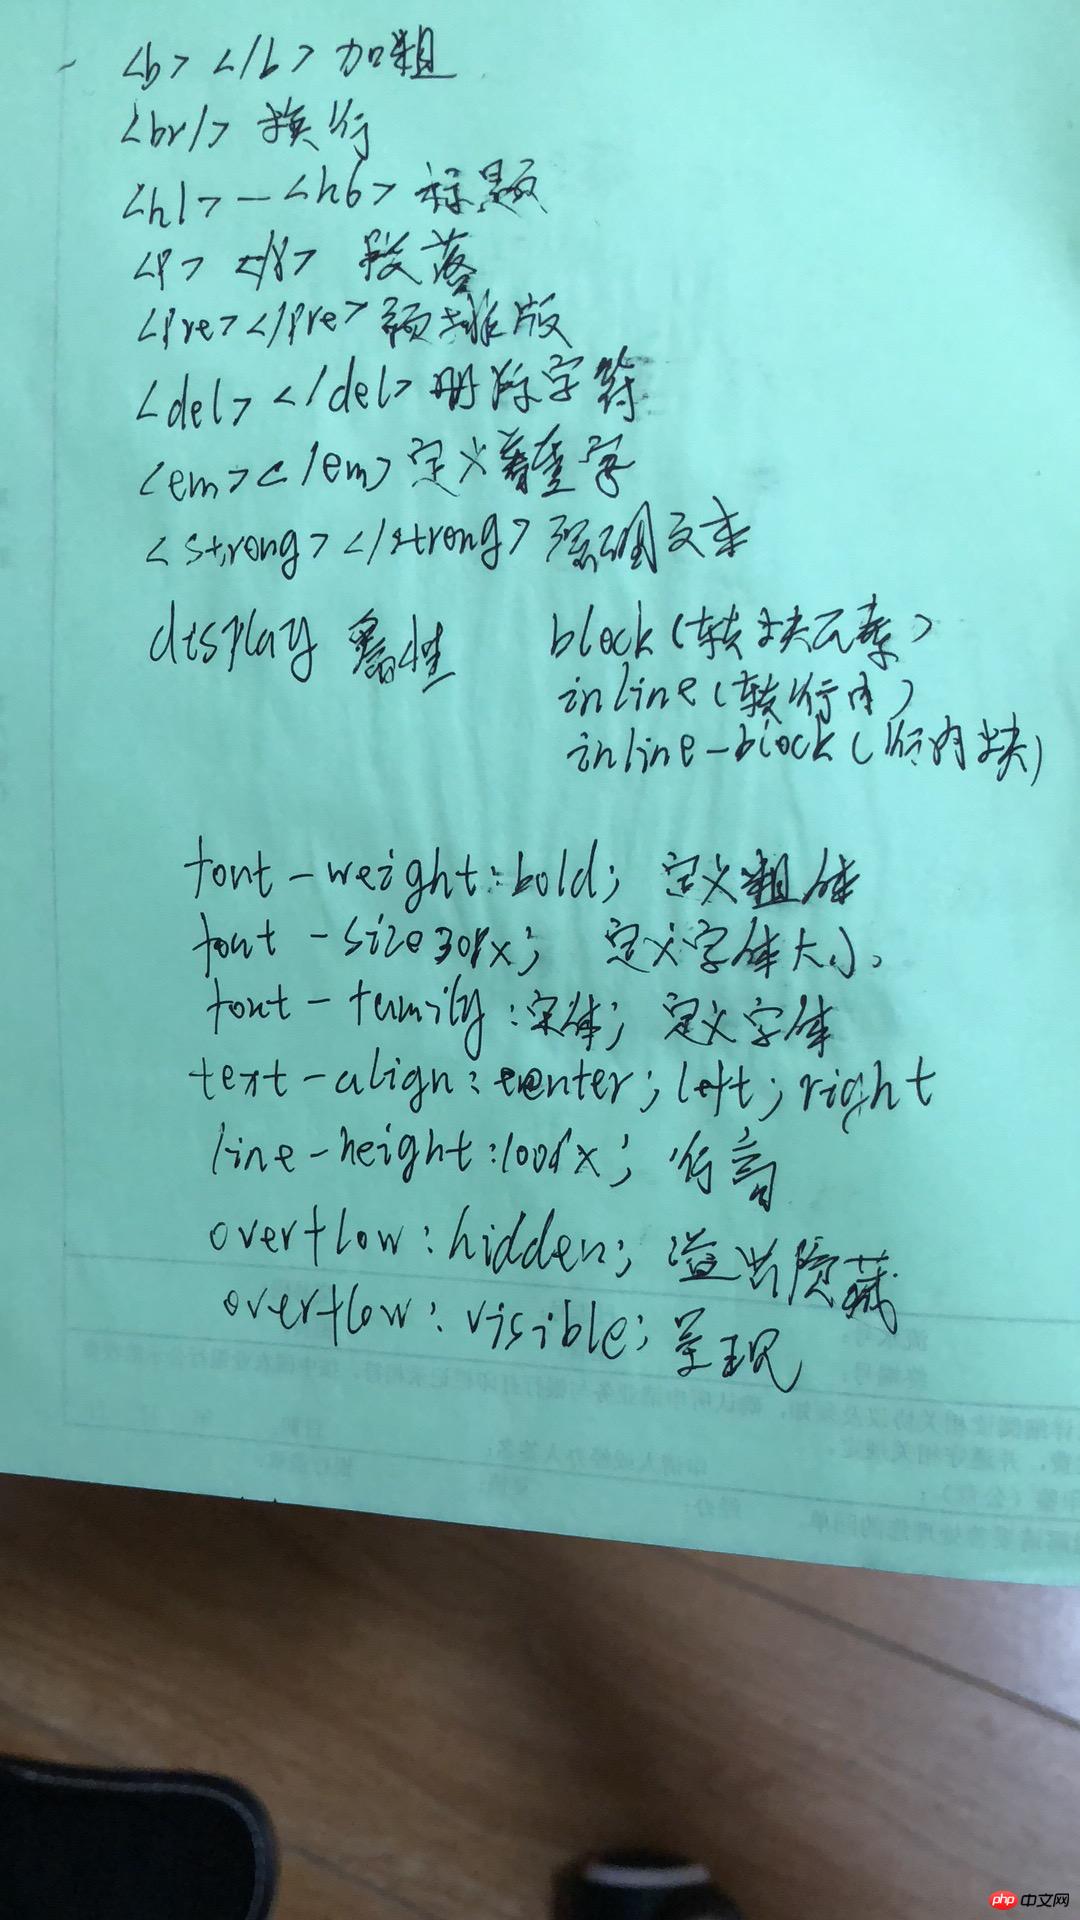 <b> </b> 加粗
<br/> 换行
<h1> — <h6> 标题
<p> </p> 段落
<pre></pre> 预排版
<del> </del> 删除字符
<em></em> 定义着重字
<strong></strong> 强调文本
display 属性 block(转块元素)
inline(转行内)
inline-block(行内块)
font-weight:bold; 定义粗体
font-size30px; 定义字体大小.
font-family:宋体; 定义字体
text-align:center;left;right
line-height:100px; 行高
overflow:hidden; 溢出隐藏
overflow:visible; 呈现
php 中文网